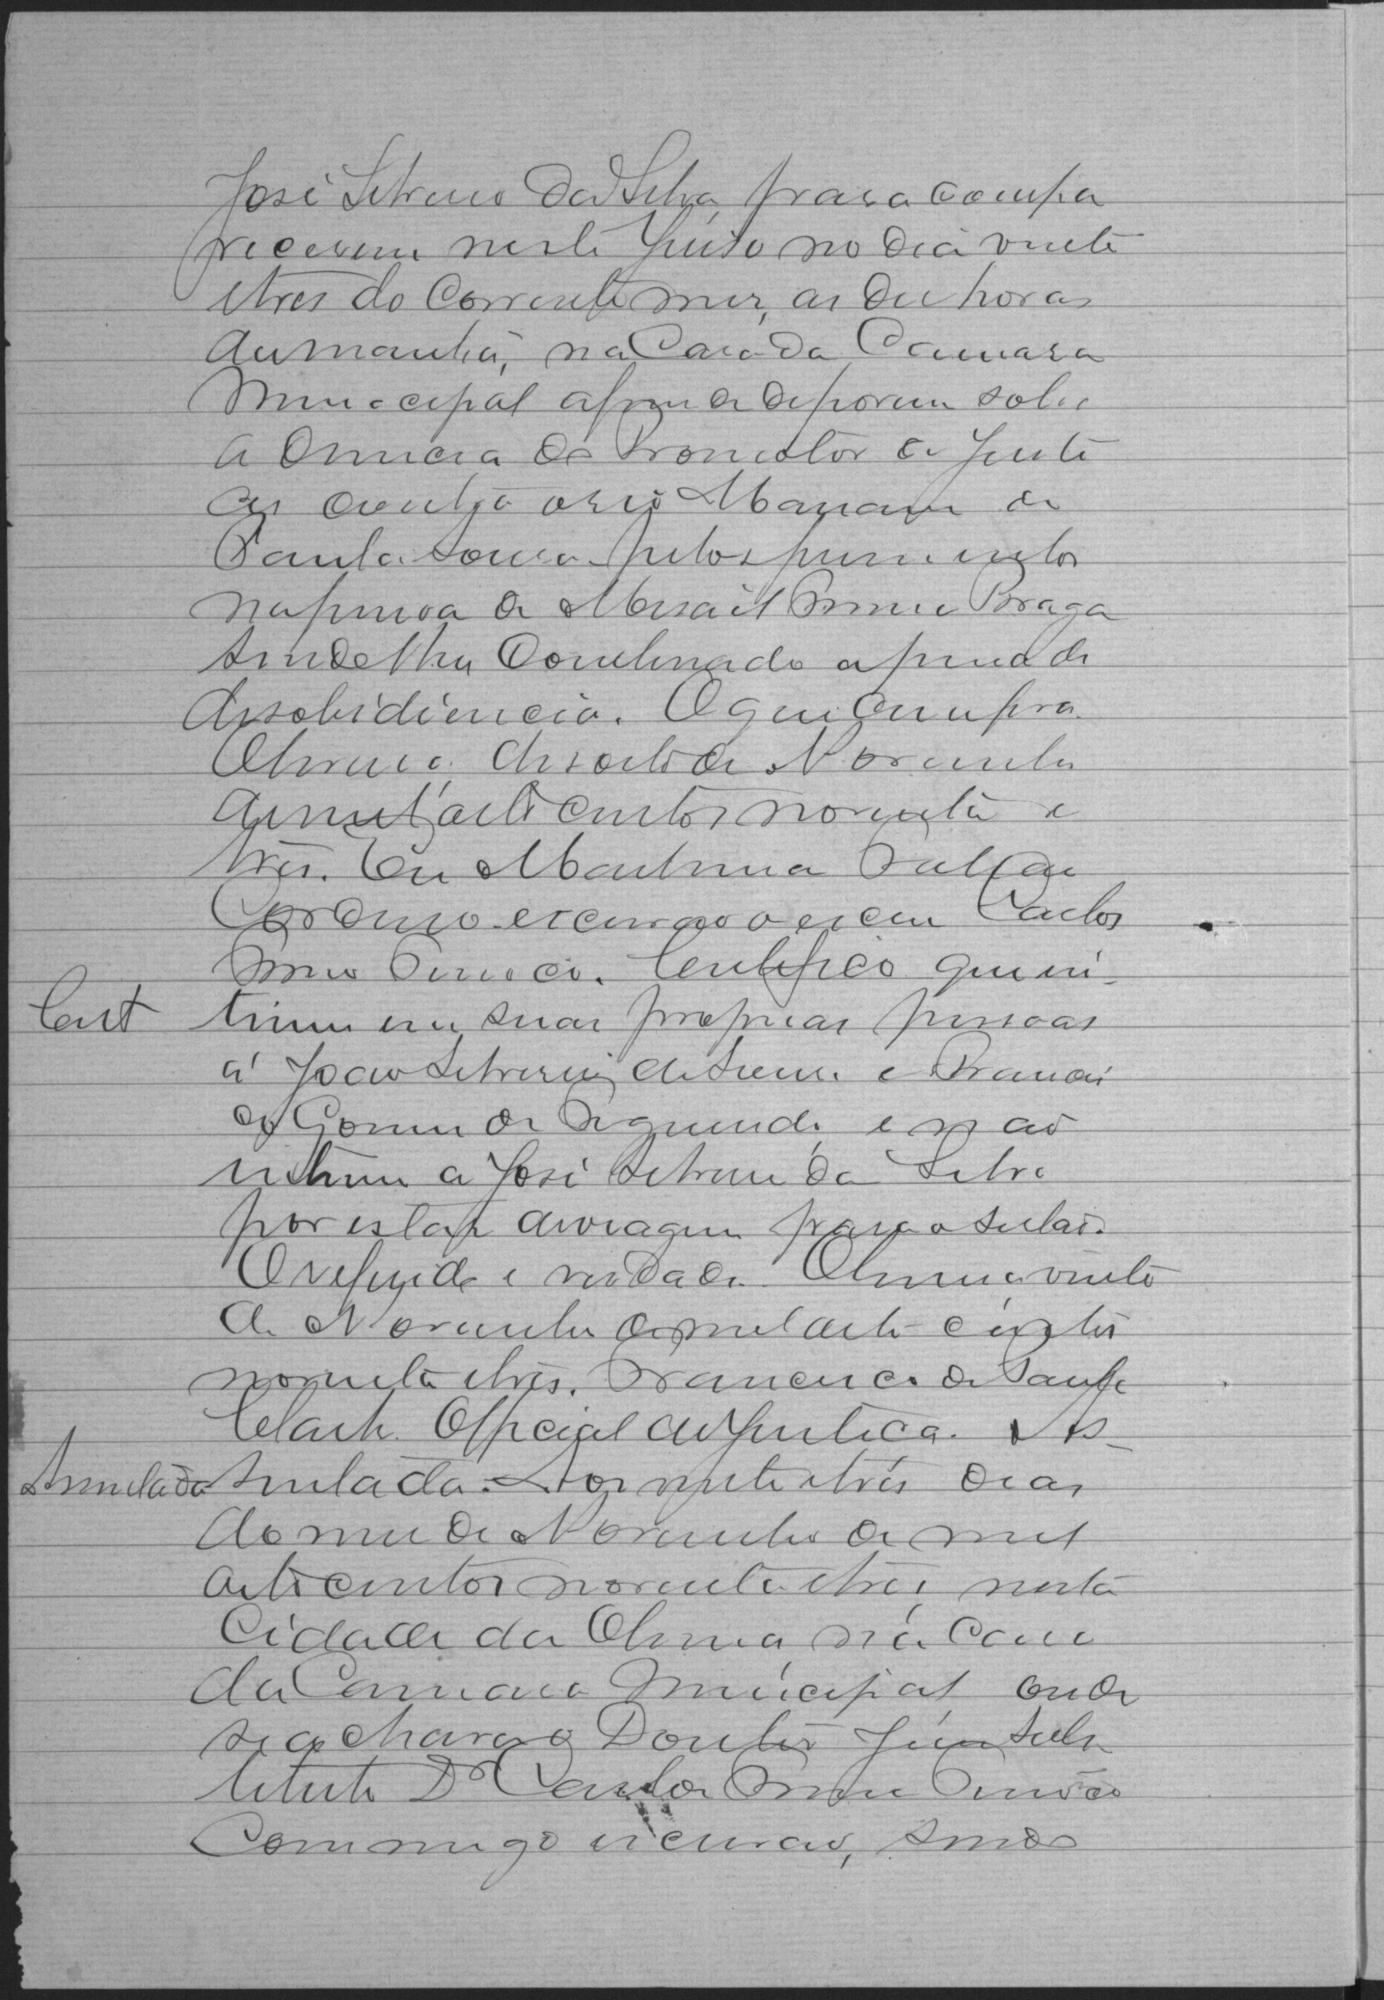 José Silverio da Silva, para compa
recerem neste Juiso no dia vinte
e tres do corrente mez, as des horas
da manhã, na Casa da Camara
Municipal afim de deporem sobre
a denuncia do Promotor de Justi
ça contra o réo Mariano de
Paula Sousa pelos ferimentos
na pessoa de Misael Braga
sendo lhes comminado a pena de
desobidiencia. O que cumpra.
Oliveira, desoito de Novembro
de mil oito centos noventa e
tres. Eu Martiniano
Cardoso escrivão o escrevi Carlos
Certifico que in-
Cert timei em suas proprias pessoas
á João Silverio de e Francis
co Gomes de e não
intimei a José Silverio da Silva
por estar de viagem para o sertão.
O referido é verdade. Oliveira vinte
de Novembro de mil oito centos
noventa e tres. Francisco de Paula
Official de Justiça. As-
Assentada sentada. Aos vinte e três dias
do mez de Novembro de mil
oito centos noventa e tres nesta
Cidade da Oliveira na casa
da Camara Municipal onde
se achava o Doutor Juis Subs
tituto Dr Carlos
Commigo escrivão, sendo